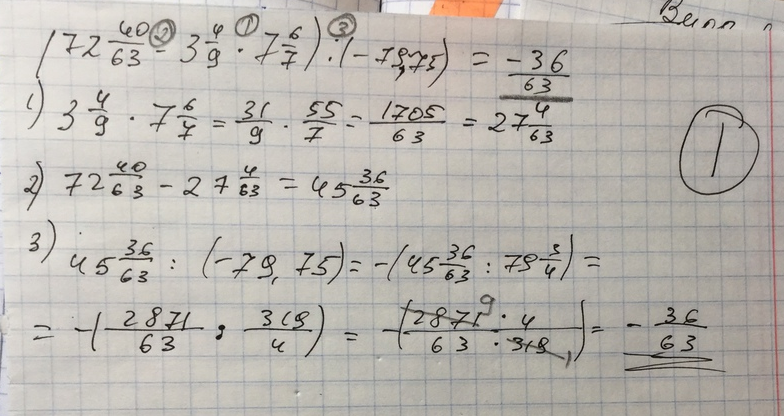 (72 40/63 - 3 4/9 · 7 6/7) : (-79,75) = -36/63
1) 3 4/9 · 7 6/7 = 31/9 · 55/7 = 1705/63 = 27 4/63
2) 72 40/63 - 27 4/63 = 45 36/63
3) 45 36/63 : (-79,75) = -(45 36/63 : 79 3/4) =
= -(2871/63 : 319/4) = -(2871 · 4 / 63 · 319) = -36/63
1